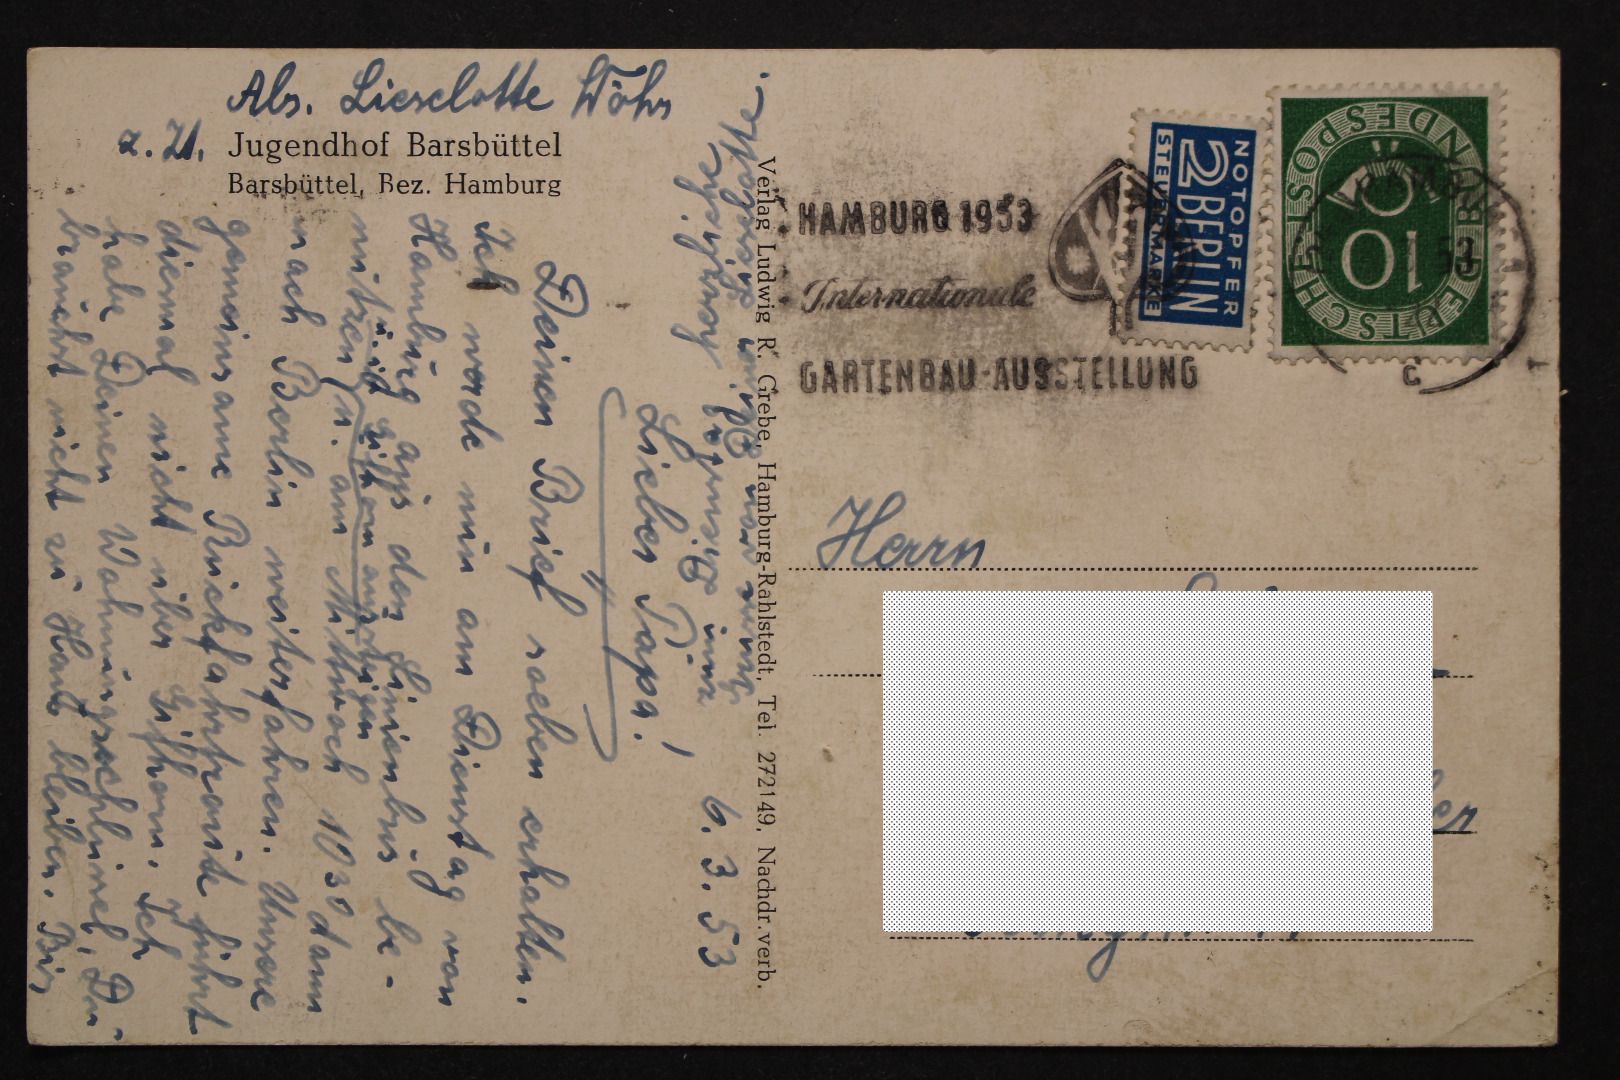 Abs. Lieselotte Wöhs
z. Zt. Jugendhof Barsbüttel
Barsbüttel, Bez. Hamburg
6. 3. 53
Lieber Papa!
Deinen Brief soeben erhalten.
Ich werde nun am Dienstag von
Hamburg aus den Linienbus be-
nützen u. am Mittwoch 10³⁰ dann
mit aus
nach Berlin weiterfahren. Unsere
gemeinsame Rückfahrtroute führt
diesmal nicht über Gifhorn. Ich
habe Deinen Wohnungsschlüssel, Du
brauchst nicht zu Hause bleiben. Bis
Verlag Ludwig R. Grebe, Hamburg-Rahlstedt, Tel. 272149, Nachdr. verb.
HAMBURG 1953
Internationale
GARTENBAU-AUSSTELLUNG
NOTOPFER
2 BERLIN
STEUERMARKE
DEUTSCHE BUNDESPOST
10
Herrn